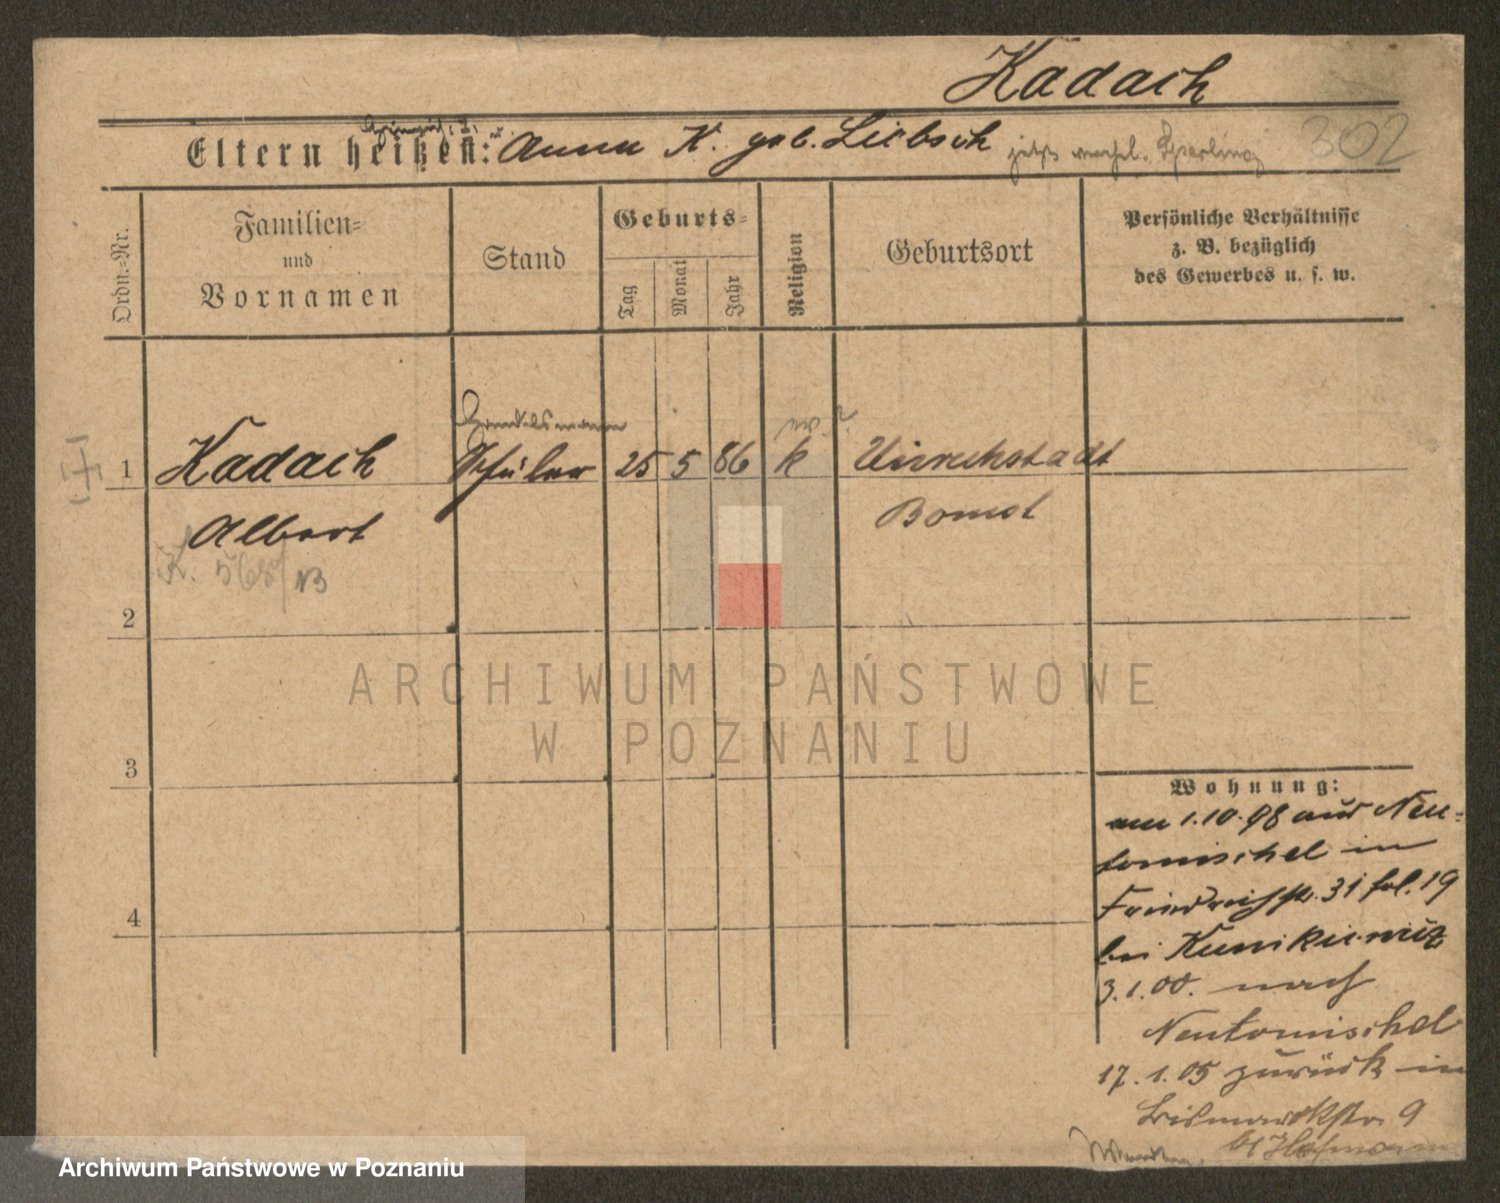 Kadach
Eltern heißen: Anna K. geb. Liebsch jetzt verehel. Sperling 302
Ordn.-Nr.
Familien-
und
Vornamen
Stand
Geburts-
Tag
Monat
Jahr
Religion
Geburtsort
Persönliche Verhältnisse
z. B. bezüglich
des Gewerbes u. s. w.
Handelsmann
1 Kadach Schüler 25 5 86 k Unruhstadt
Albert Bomst
K. 568/13
2
ARCHIWUM PAŃSTWOWE
W POZNANIU
3
Wohnung:
am 1.10.98 aus Neu-
tomischel in
Friedrichstr. 31 fol. 19
bei Kunikiewicz
3.1.00. nach
Neutomischel
17.1.05 zurück in
Bismarckstr. 9
bei Hofmann
4
Archiwum Państwowe w Poznaniu